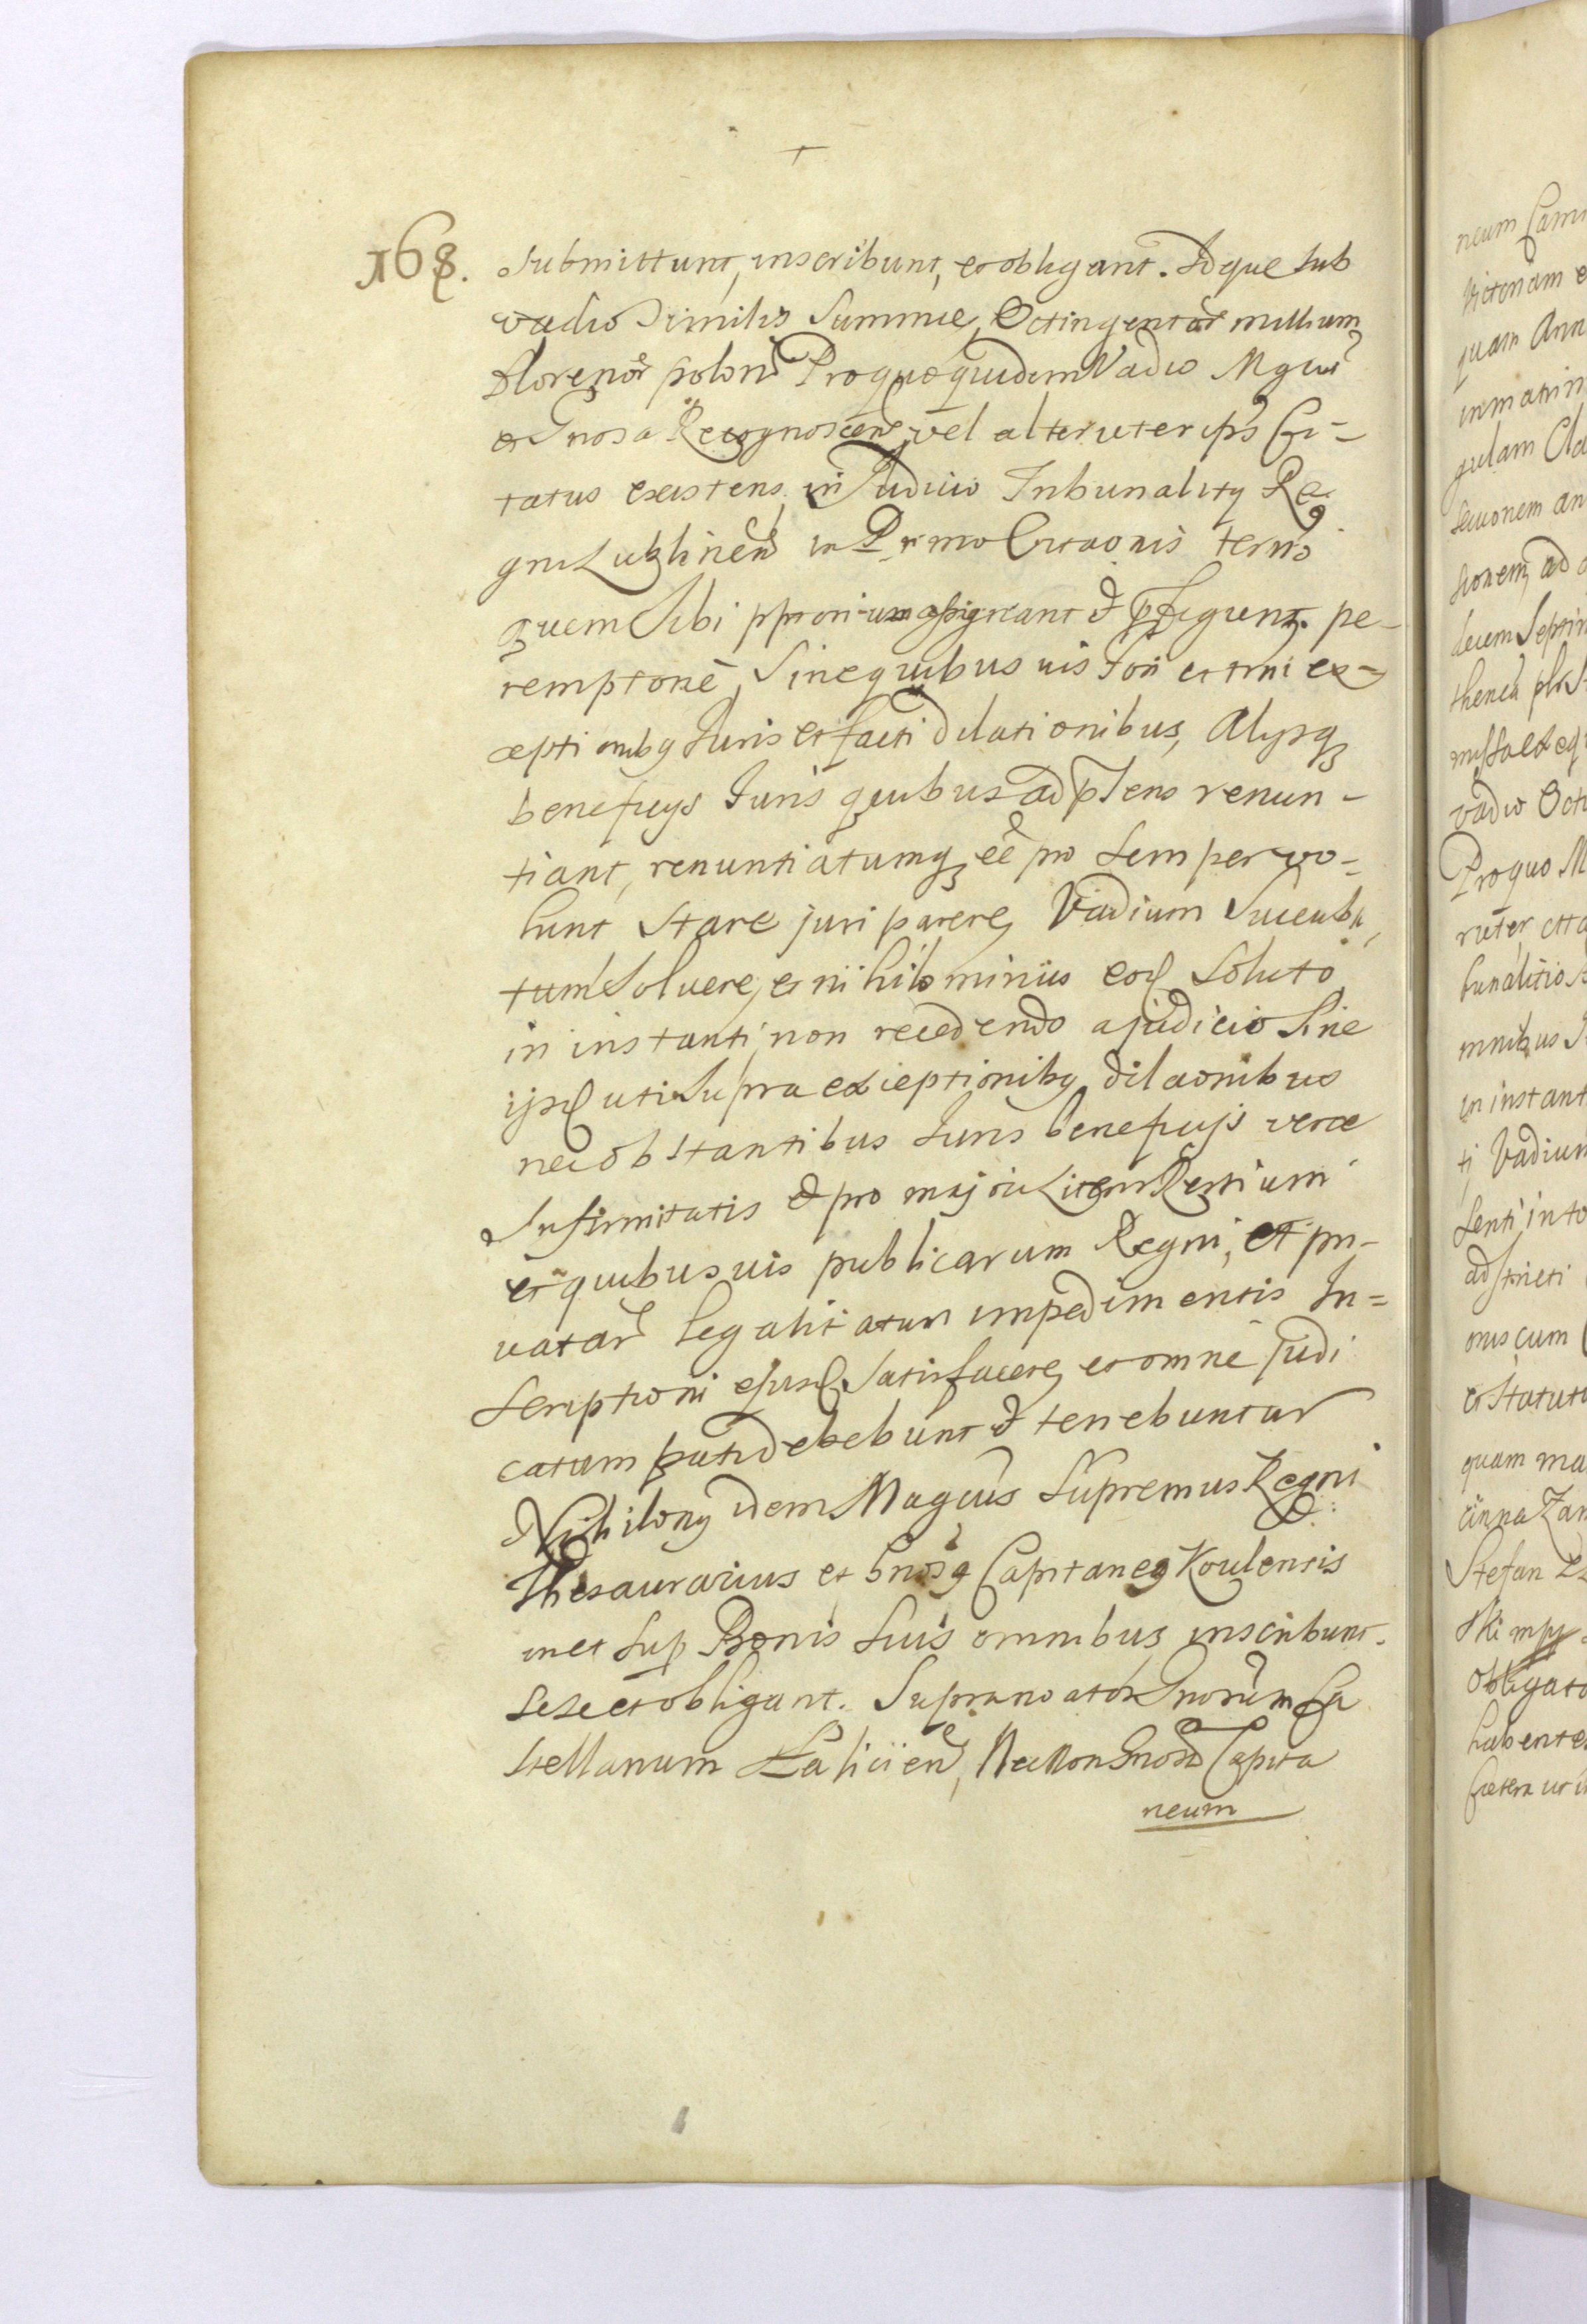 168.
Submittunt, inscribunt, et obligant. Idque sub
vadio Similis Summæ, Octingentar millium
florenor polon Pro quo quidem Vadio Mgcus
et Gnosa Recognoscen vel alteruter ips Ci-
tatus existens, in Judicio Tribunality Re
gni Lublinen in Primo Citaonis termo
quem Sibi pro assignant et pfigunt pe-
remptorie, Sine quibus uis fori et tmi ex-
ceptionibq Juris et facti dilationibus, Alysq
beneficijs Juris quibus ad pTens renun-
tiant, renuntiatumq eē pro Semper vo-
lunt Stare juri parere, Vadium Succubi
tum Soluere, et nihilo minus eod Soluto
in instanti, non recedendo a judicio Sine
ijsd uti Supra exceptionibq dilaonibus
nec obstantibus Juris beneficijs veræ
Infirmitatis et pro majori
et quibusuis publicarum Regni, et pri-
uatar legalitatum impedimentis In-
scriptioni ejusd Satisfacere, et omne judi
catum pati debebunt et tenebuntur
Nihilonq idem Magcus Supremus Regni
Thesaurarius et Gnosq Capitaneq Koulensis
in et Sup Bonis Suis omnibus inscribunt
sese et obligant. Supranoator Gnorum Ca
stellanum Haliciien, Nec Non Gnosd Capita
neum
neum Cam
Victoriam e
quam Ann
in matrim
gulam Cla
sionem ad
decem Septin
vadio Octi
Pro quo M
ruter cita
bunalitio
mnibus J
in instant
ti, Vadium
senti in to
adstricti
onis cum
et statut
quam ma
anna Zam
Stefan
ski mpp
obligato
habentes
Cætera ut i